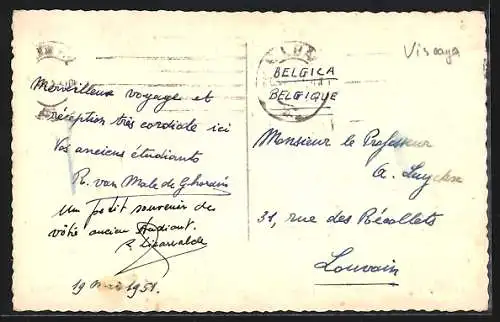 Merveilleux voyage et
réception très cordiale ici
Vos anciens étudiants
R. van Male de Ghorain
Un petit souvenir de
votre ancien étudiant.
R.
19 mai 1951.
Viscaya
BELGICA
BELGIQUE
Monsieur le Professeur
A. Luyckx
31, rue des Récollets
Louvain